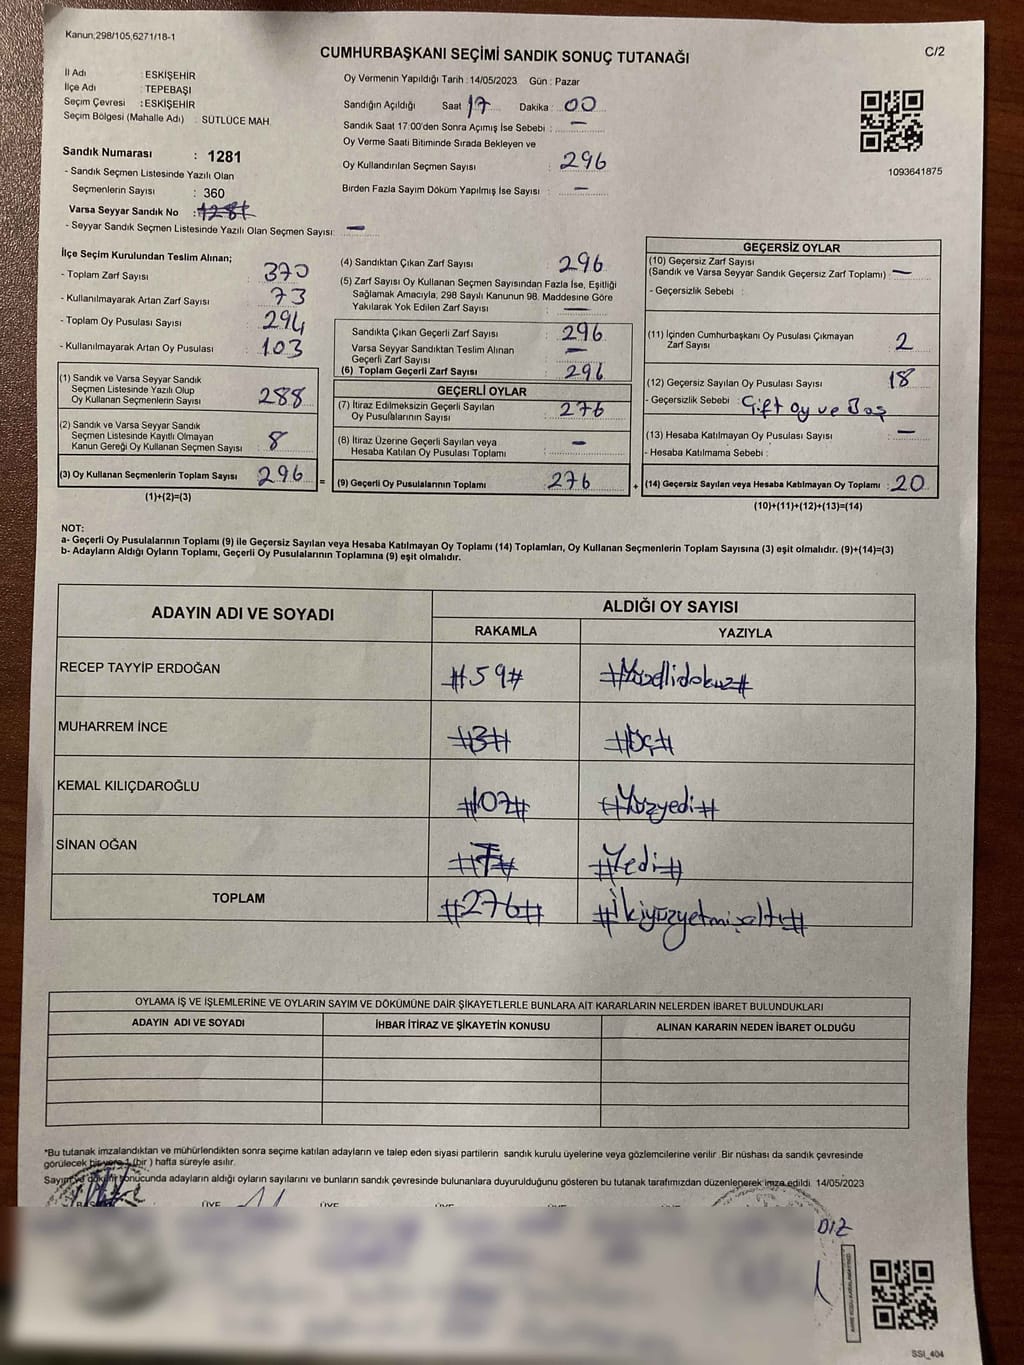 Kanun,298/105,6271/18-1
C/2
CUMHURBAŞKANI SEÇİMİ SANDIK SONUÇ TUTANAĞI
İl Adı : ESKİŞEHİR
İlçe Adı : TEPEBAŞI
Seçim Çevresi : ESKİŞEHİR
Seçim Bölgesi (Mahalle Adı) : SÜTLÜCE MAH.
Oy Vermenin Yapıldığı Tarih :14/05/2023 Gün : Pazar
Sandığın Açıldığı Saat 17 Dakika : 00
Sandık Saat 17:00'den Sonra Açımış İse Sebebi : —
Oy Verme Saati Bitiminde Sırada Bekleyen ve
Oy Kullandırılan Seçmen Sayısı : 296
Birden Fazla Sayım Döküm Yapılmış İse Sayısı : —
1093641875
Sandık Numarası : 1281
- Sandık Seçmen Listesinde Yazılı Olan
Seçmenlerin Sayısı : 360
Varsa Seyyar Sandık No : 1281
- Seyyar Sandık Seçmen Listesinde Yazılı Olan Seçmen Sayısı: —
İlçe Seçim Kurulundan Teslim Alınan;
- Toplam Zarf Sayısı : 370
- Kullanılmayarak Artan Zarf Sayısı : 73
- Toplam Oy Pusulası Sayısı : 294
- Kullanılmayarak Artan Oy Pusulası : 103
(1) Sandık ve Varsa Seyyar Sandık
Seçmen Listesinde Yazılı Olup
Oy Kullanan Seçmenlerin Sayısı : 288
(2) Sandık ve Varsa Seyyar Sandık
Seçmen Listesinde Kayıtlı Olmayan
Kanun Gereği Oy Kullanan Seçmen Sayısı : 8
(3) Oy Kullanan Seçmenlerin Toplam Sayısı : 296
(1)+(2)=(3)
=
(4) Sandıktan Çıkan Zarf Sayısı : 296
(5) Zarf Sayısı Oy Kullanan Seçmen Sayısından Fazla İse, Eşitliği
Sağlamak Amacıyla, 298 Sayılı Kanunun 98. Maddesine Göre
Yakılarak Yok Edilen Zarf Sayısı : —
Sandıkta Çıkan Geçerli Zarf Sayısı : 296
Varsa Seyyar Sandıktan Teslim Alınan
Geçerli Zarf Sayısı : —
(6) Toplam Geçerli Zarf Sayısı : 296
GEÇERLİ OYLAR
(7) İtiraz Edilmeksizin Geçerli Sayılan
Oy Pusulalarının Sayısı : 276
(8) İtiraz Üzerine Geçerli Sayılan veya
Hesaba Katılan Oy Pusulası Toplamı : —
(9) Geçerli Oy Pusulalarının Toplamı : 276
+
GEÇERSİZ OYLAR
(10) Geçersiz Zarf Sayısı
(Sandık ve Varsa Seyyar Sandık Geçersiz Zarf Toplamı) : —
- Geçersizlik Sebebi :
(11) İçinden Cumhurbaşkanı Oy Pusulası Çıkmayan
Zarf Sayısı : 2
(12) Geçersiz Sayılan Oy Pusulası Sayısı : 18
- Geçersizlik Sebebi : Çift oy ve Boş
(13) Hesaba Katılmayan Oy Pusulası Sayısı : —
- Hesaba Katılmama Sebebi :
(14) Geçersiz Sayılan veya Hesaba Katılmayan Oy Toplamı : 20
(10)+(11)+(12)+(13)=(14)
NOT:
a- Geçerli Oy Pusulalarının Toplamı (9) ile Geçersiz Sayılan veya Hesaba Katılmayan Oy Toplamı (14) Toplamları, Oy Kullanan Seçmenlerin Toplam Sayısına (3) eşit olmalıdır. (9)+(14)=(3)
b- Adayların Aldığı Oyların Toplamı, Geçerli Oy Pusulalarının Toplamına (9) eşit olmalıdır.
ADAYIN ADI VE SOYADI
ALDIĞI OY SAYISI
RAKAMLA YAZIYLA
RECEP TAYYİP ERDOĞAN #159# #Yüzellidokuz#
MUHARREM İNCE #3# #Üç#
KEMAL KILIÇDAROĞLU #107# #Yüzyedi#
SİNAN OĞAN #7# #Yedi#
TOPLAM #276# #İkiyüzyetmişaltı#
OYLAMA İŞ VE İŞLEMLERİNE VE OYLARIN SAYIM VE DÖKÜMÜNE DAİR ŞİKAYETLERLE BUNLARA AİT KARARLARIN NELERDEN İBARET BULUNDUKLARI
ADAYIN ADI VE SOYADI İHBAR İTİRAZ VE ŞİKAYETİN KONUSU ALINAN KARARIN NEDEN İBARET OLDUĞU
*Bu tutanak imzalandıktan ve mühürlendikten sonra seçime katılan adayların ve talep eden siyasi partilerin sandık kurulu üyelerine veya gözlemcilerine verilir. Bir nüshası da sandık çevresinde
görülecek bir yere 1 (bir) hafta süreyle asılır.
Sayım ve döküm sonucunda adayların aldığı oyların sayılarını ve bunların sandık çevresinde bulunanlara duyurulduğunu gösteren bu tutanak tarafımızdan düzenlenerek imza edildi. 14/05/2023
ÜYE ÜYE ÜYE ÜYE
DIZ
SSI_404